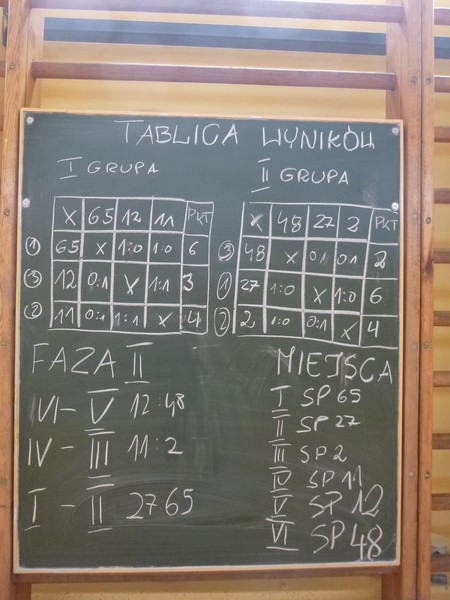 TABLICA WYNIKÓW
I GRUPA
X 65 12 11 PKT
① 65 X 1:0 1:0 6
③ 12 0:1 X 1:1 3
② 11 0:1 1:1 X 4
II GRUPA
X 48 27 2 PKT
③ 48 X 0:1 0:1 2
① 27 1:0 X 1:0 6
② 2 1:0 0:1 X 4
FAZA II
VI - V 12:48
IV - III 11:2
I - II 27 65
MIEJSCA
I SP 65
II SP 27
III SP 2
IV SP 11
V SP 12
VI SP 48